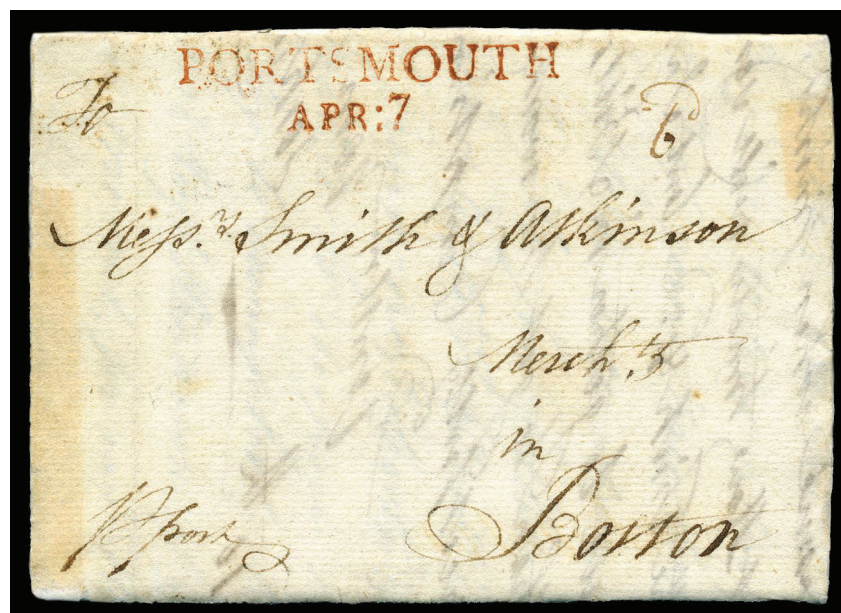 PORTSMOUTH
APR:7
To
Mess.rs Smith & Atkinson
Merch.ts
in
Boston
post